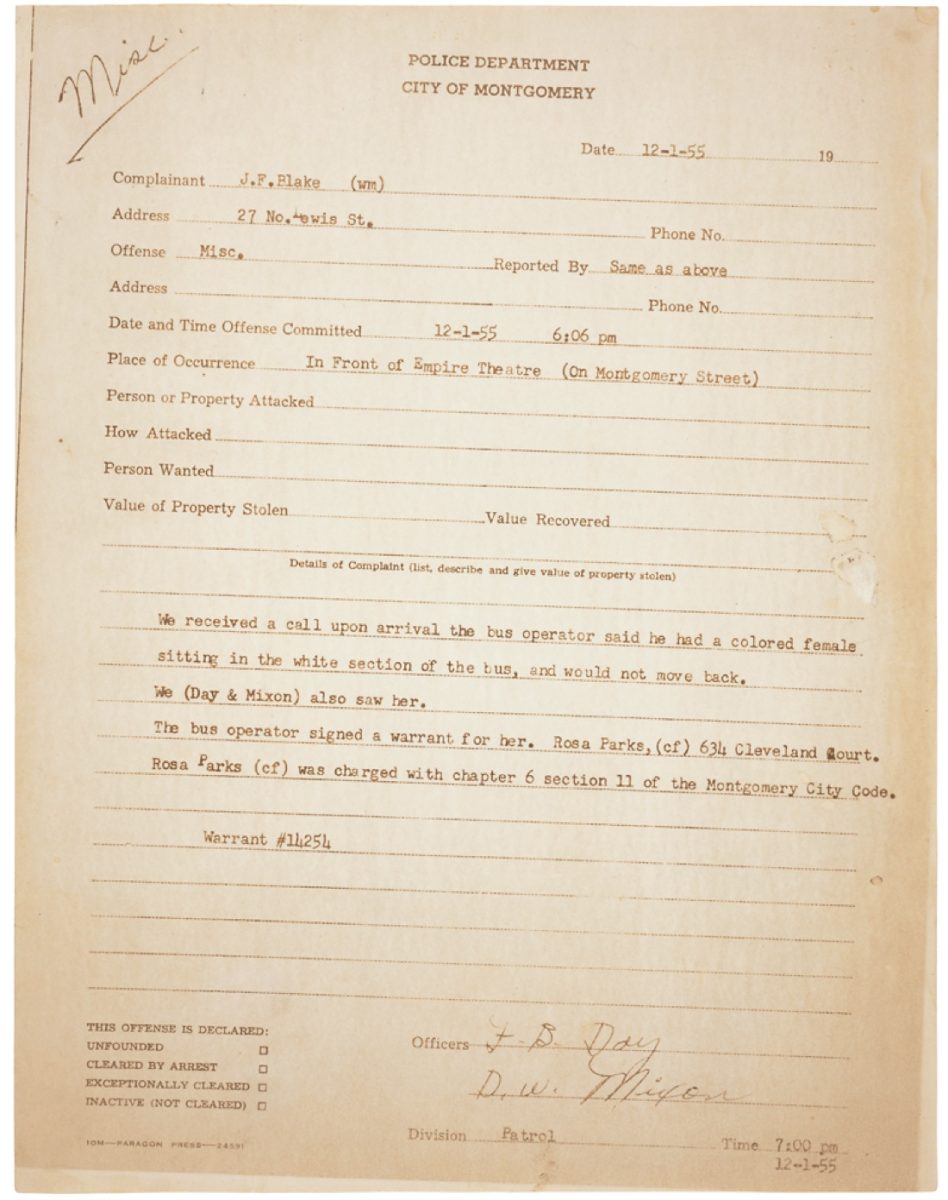 Misc.
POLICE DEPARTMENT
CITY OF MONTGOMERY
Date 12-1-55 19
Complainant J.F.Blake (wm)
Address 27 No.Lewis St.
Phone No.
Offense Misc. Reported By Same as above
Address Phone No.
Date and Time Offense Committed 12-1-55 6:06 pm
Place of Occurrence In Front of Empire Theatre (On Montgomery Street)
Person or Property Attacked
How Attacked
Person Wanted
Value of Property Stolen Value Recovered
Details of Complaint (list, describe and give value of property stolen)
We received a call upon arrival the bus operator said he had a colored female
sitting in the white section of the bus, and would not move back.
We (Day & Mixon) also saw her.
The bus operator signed a warrant for her. Rosa Parks, (cf) 634 Cleveland Court.
Rosa Parks (cf) was charged with chapter 6 section 11 of the Montgomery City Code.
Warrant #14254
THIS OFFENSE IS DECLARED:
UNFOUNDED
CLEARED BY ARREST
EXCEPTIONALLY CLEARED
INACTIVE (NOT CLEARED)
Officers F. B. Day
D. W. Mixon
Division Patrol Time 7:00 pm
12-1-55
10M—PARAGON PRESS—24591